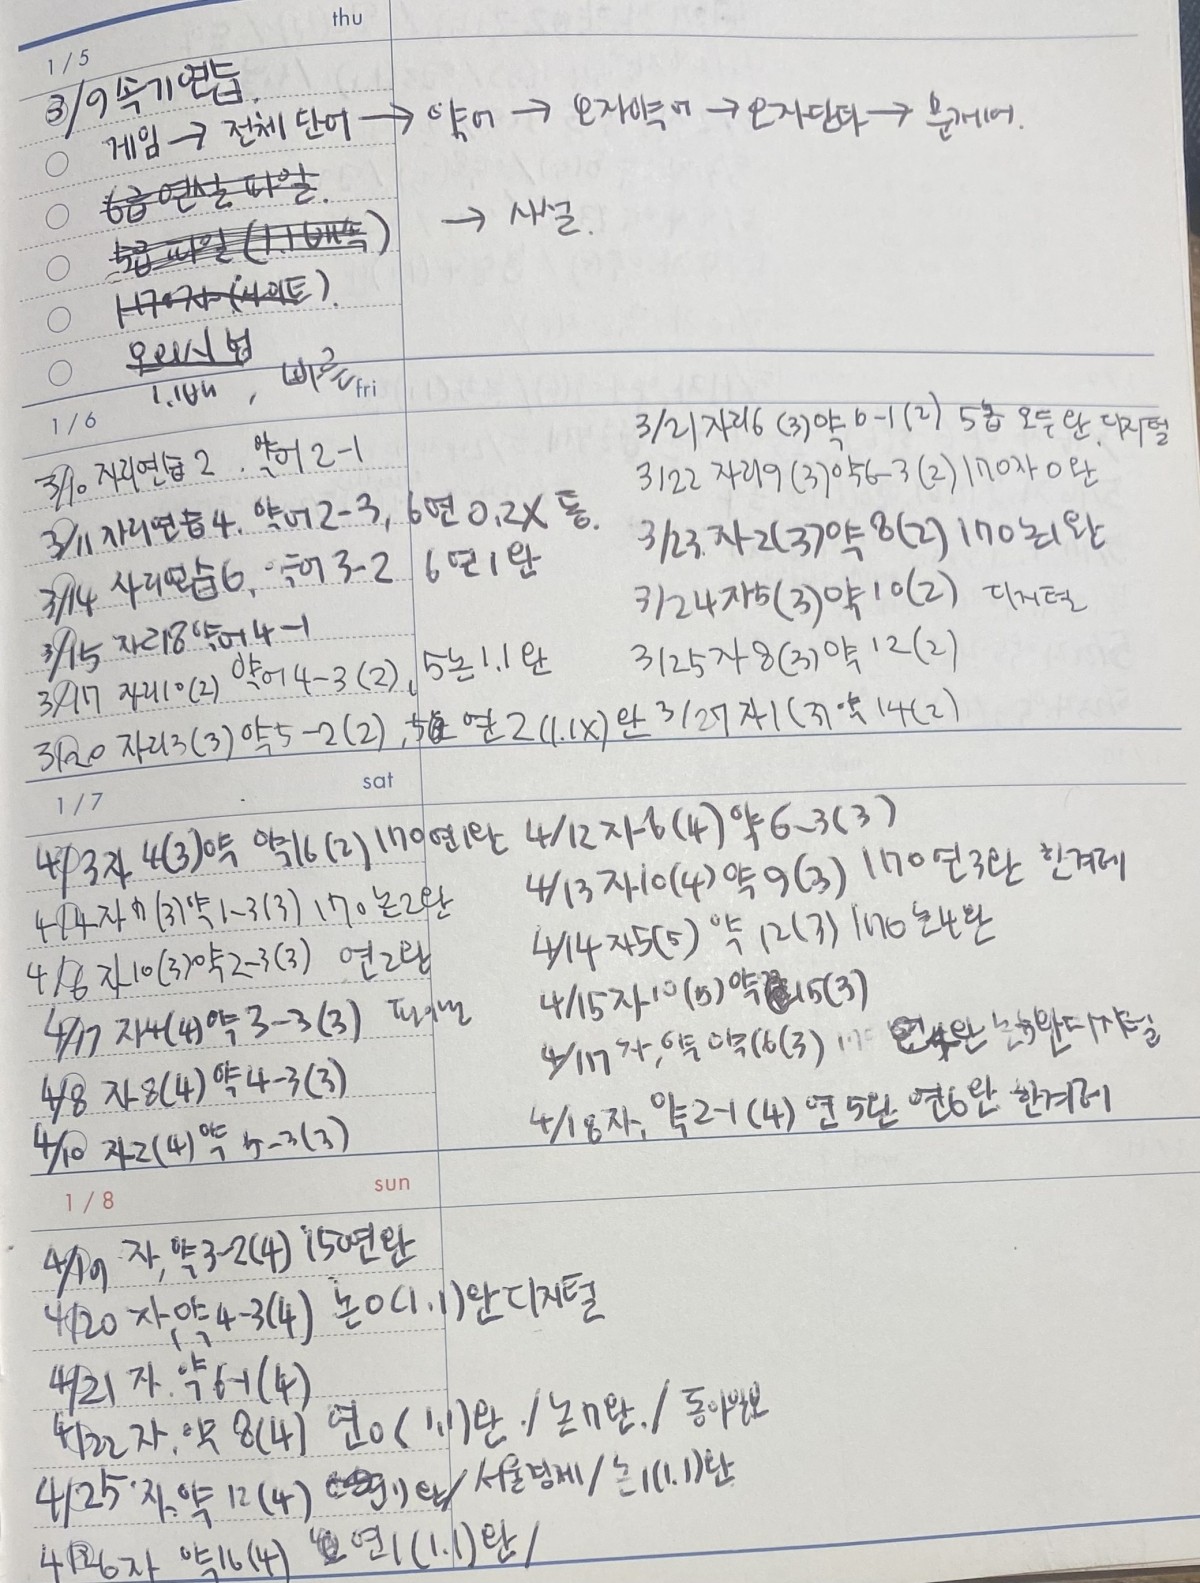 thu
1/5
3/9 속기연습.
게임 → 전체 단어 → 약어 → 오자약어 → 오자단타 → 문제어.
6급 연설 파일.
5급 파일 (1.1배속) → 사설.
170자 (사이트).
1.1배,
fri
1/6
3/10 자리연습 2. 약어 2-1
3/11 자리연습 4. 약어 2-3, 6연 0.2X 통.
3/14 자리연습 6. 약어 3-2 6연 1완
3/15 자리 8 약어 4-1
3/17 자리 10(2) 약어 4-3(2), 5논 1.1완
3/20 자리 3(3) 약 5-2(2), 연 2(1.1x)완
3/21 자리 6(3) 약 6-1(2) 5논 모두완. 디지털
3/22 자리 9(3) 약 6-3(2) 170자 0완
3/23 자 2(3) 약 8(2) 170논1완
3/24 자 5(3) 약 10(2) 디지털
3/25 자 8(3) 약 12(2)
3/27 자 1(3) 약 14(2)
sat
1/7
4/3 자 4(3) 약 약 16(2) 170연1완
4/4 자 7(3) 약 1-3(3) 170논2완
4/6 자 10(3) 약 2-3(3) 연2완
4/7 자 4(4) 약 3-3(3)
4/8 자 8(4) 약 4-3(3)
4/10 자 2(4) 약 5-3(3)
4/12 자 6(4) 약 6-3(3)
4/13 자 10(4) 약 9(3) 170연3완 한겨레
4/14 자 5(5) 약 12(3) 170논4완
4/15 자 10(5) 약 15(3)
4/17 자, 약 약 16(3) 연4완 논5완 디지털
4/18 자, 약 2-1(4) 연5완 연6완 한겨레
sun
1/8
4/19 자, 약 3-2(4) 150연완
4/20 자, 약 4-3(4) 논0(1.1)완 디지털
4/21 자. 약 6-1(4)
4/22 자, 약 8(4) 연0(1.1)완. / 논7완. / 동아일보
4/25 자. 약 12(4) 완 / 서울경제 / 논1(1.1)완
4/26 자 약 16(4) 연1(1.1)완 /